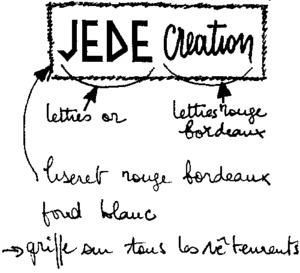 JEDE Creation
lettres or
lettres rouge
bordeaux
liseret rouge bordeaux
fond blanc
→ griffe sur tous les vêtements